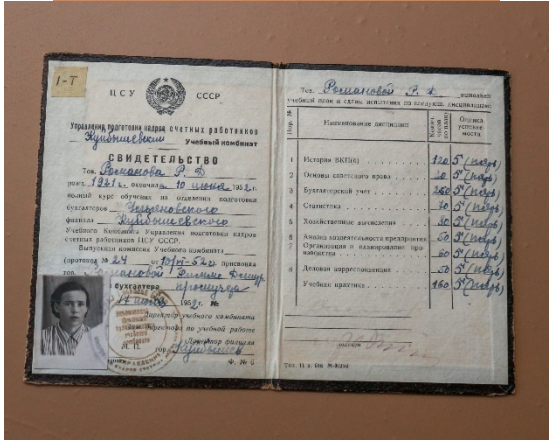 1-Т
ЦСУ СССР
Управления подготовки кадров счетных работников
Куйбышевский Учебный комбинат
СВИДЕТЕЛЬСТВО
Тов. Романова Р. Д.
рожд. 1921 г. окончила 10 июня 1952 г.
полный курс обучения на отделении подготовки
бухгалтеров
филиала Куйбышевского
Учебного Комбината Управления подготовки кадров
счетных работников ЦСУ СССР.
Выпускная комиссия Учебного комбината
(протокол № 24 от 10/VI-52 г.) присвоила
тов. Романовой
бухгалтера
1952 г. №
Директор учебного комбината
по учебной работе
Директор филиала
М. П. гор. Куйбышев
Ф. № 6
Тов. Романовой Р. Д. выполнил
учебный план и сдал испытания по следующ. дисциплинам:
Пор. № Наименование дисциплин Колич. часов по плану Оценка успеваемости
1 История ВКП(б) 120 5
2 Основы советского права 20 5
3 Бухгалтерский учет 260 5
4 Статистика 5
5 Хозяйственные вычисления 5
6 Анализ хоздеятельности предприятия 5
7 Организация и планирование производства 60 5
8 Деловая корреспонденция 5
Учебная практика 160 5